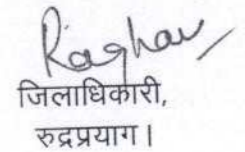 Raghav
जिलाधिकारी,
रुद्रप्रयाग।